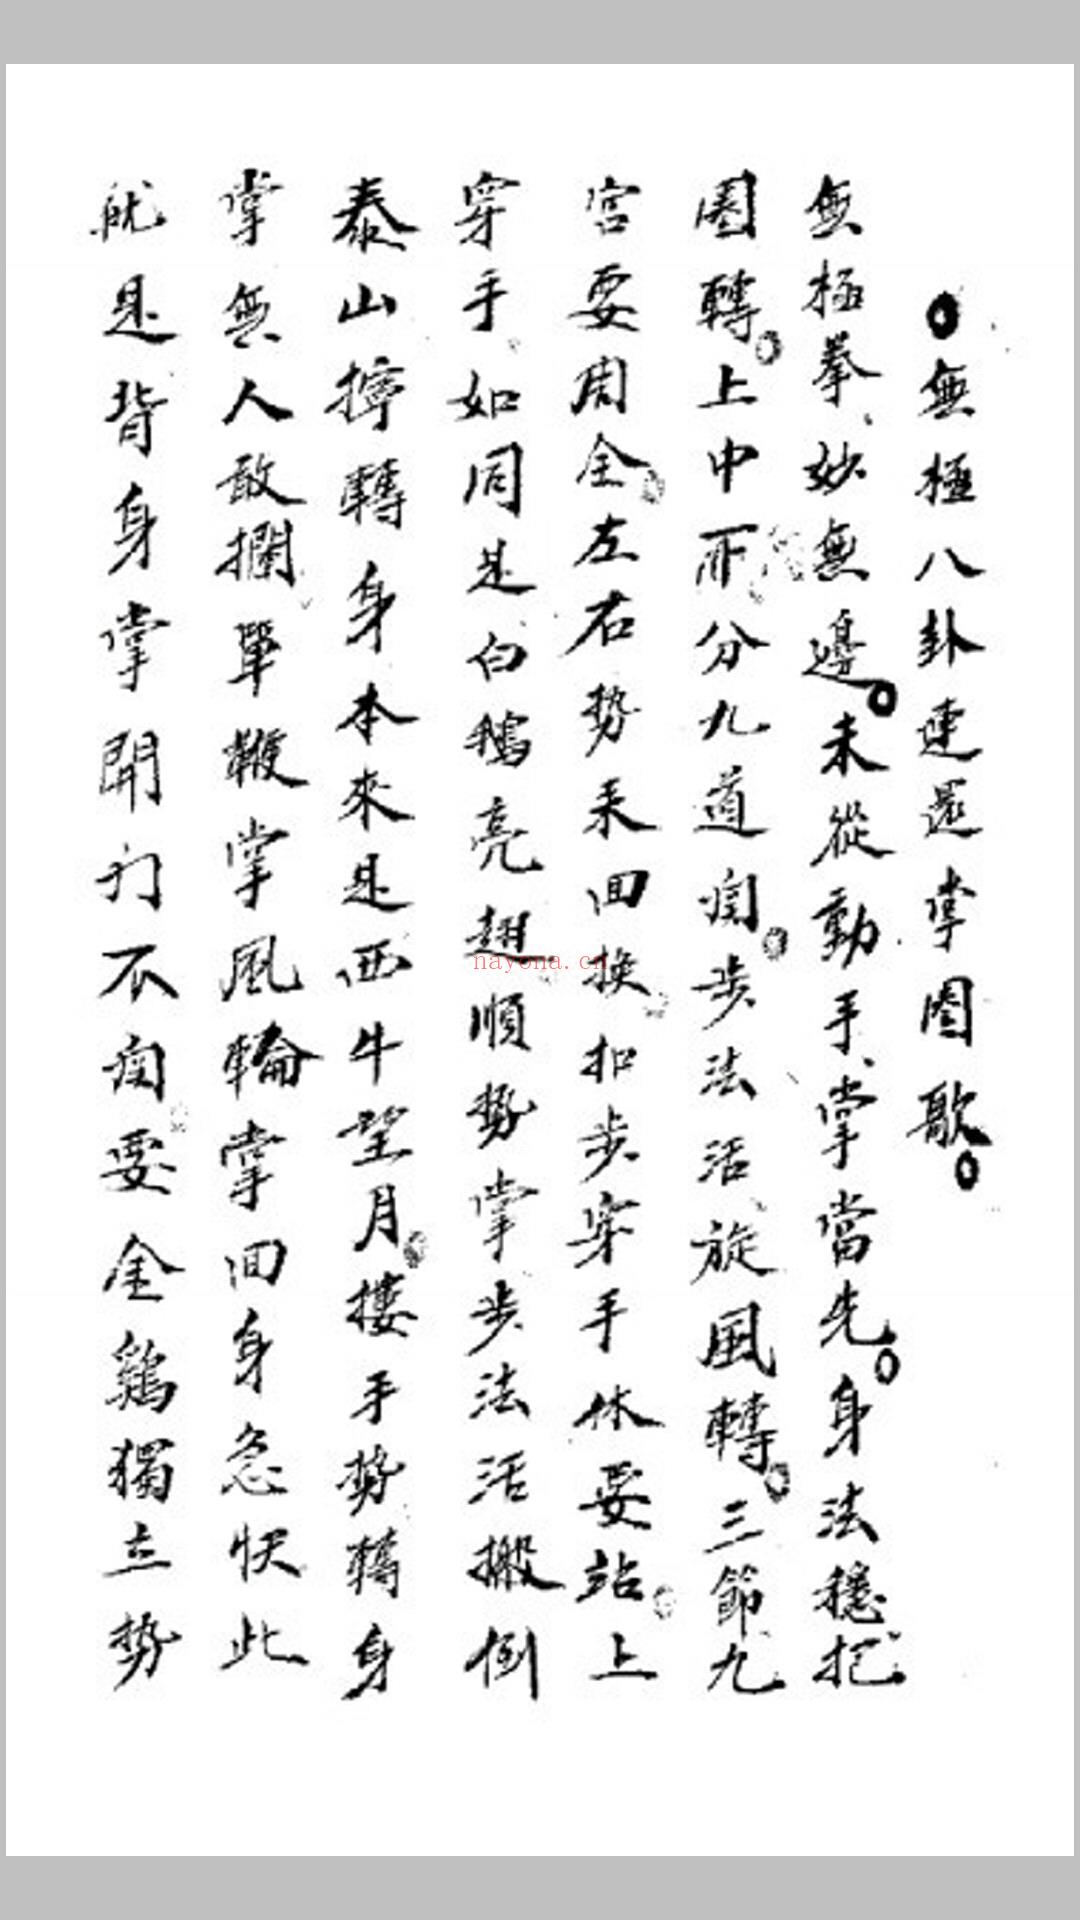 無極八卦連還掌圈歌
無極拳妙無邊未從動手掌當先身法穩把
圈轉上中下分九道洵步法活旋風轉三節九
宮要周全左右势来回換扣步穿手休要站上
穿手如同是白鵝亮翅順势掌步法活搬倒
泰山擰轉身本來是西牛望月摟手势轉身
掌無人敢攔單鞭掌風輪掌回身急快此
就是背身掌開门不洵要金鷄獨立势
nayona.cn